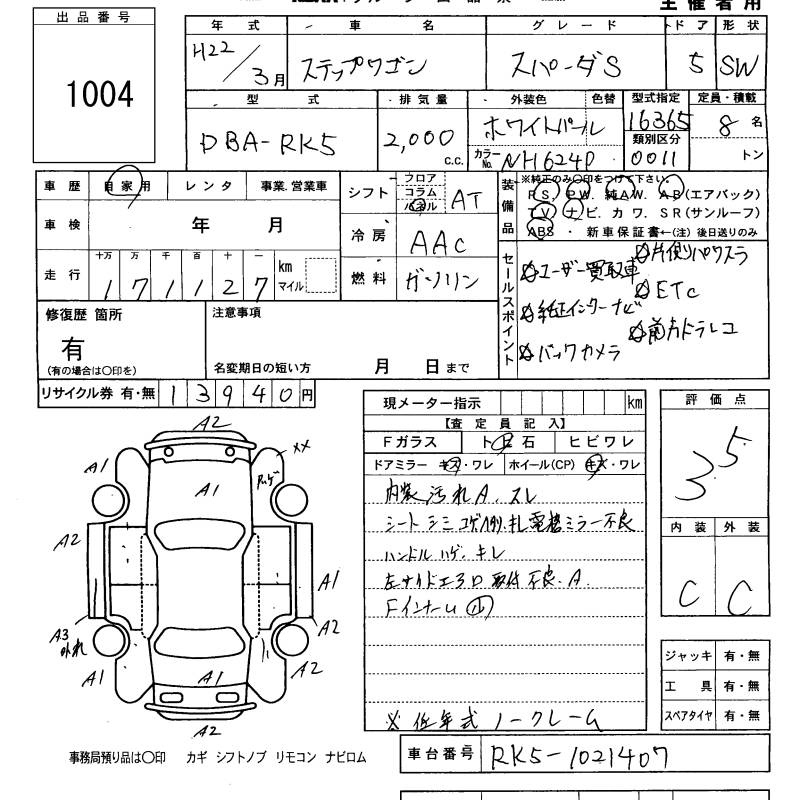 主催者用
出品番号
1004
年式 車名 グレード ドア 形状
H22/3月 ステップワゴン スパーダS 5 SW
型式 排気量 外装色 色替 型式指定 定員・積載
DBA-RK5 2,000 c.c. ホワイトパール 16365 8名
カラーNo. NH624P 類別区分 0011 トン
車歴 自家用 レンタ 事業.営業車
車検 年 月
走行 十万 万 千 百 十 一
171127 km マイル
シフト フロア コラム パネル AT
冷房 AAC
燃料 ガソリン
装備品 ※純正のみ〇印をつけて下さい。
PS, PW. 純AW. AB(エアバック)
TV ナビ. カワ. SR(サンルーフ)
ABS ・ 新車保証書←(注) 後日送りのみ
セールスポイント
ユーザー買取車 片側パワスラ
純正インターナビ ETC
バックカメラ 前方ドラレコ
修復歴 箇所
有
(有の場合は〇印を)
注意事項
名変期日の短い方 月 日まで
リサイクル券 有・無 13940円
現メーター指示 km
【査定員記入】
Fガラス ト石 ヒビワレ
ドアミラー キズ・ワレ ホイール(CP) キズ・ワレ
内装汚れA.スレ
シート シミ コゲ
ハンドル ハゲ、キレ
左サイドエアロ取付不良.A.
※低年式 ノークレーム
評価点
3.5
内装 外装
C C
ジャッキ 有・無
工具 有・無
スペアタイヤ 有・無
A2
A1 A1 XX
A2 A1
A3 外れ A2
A1 A1 A2
A2
事務局預り品は〇印 カギ シフトノブ リモコン ナビロム
車台番号 RK5-1021407